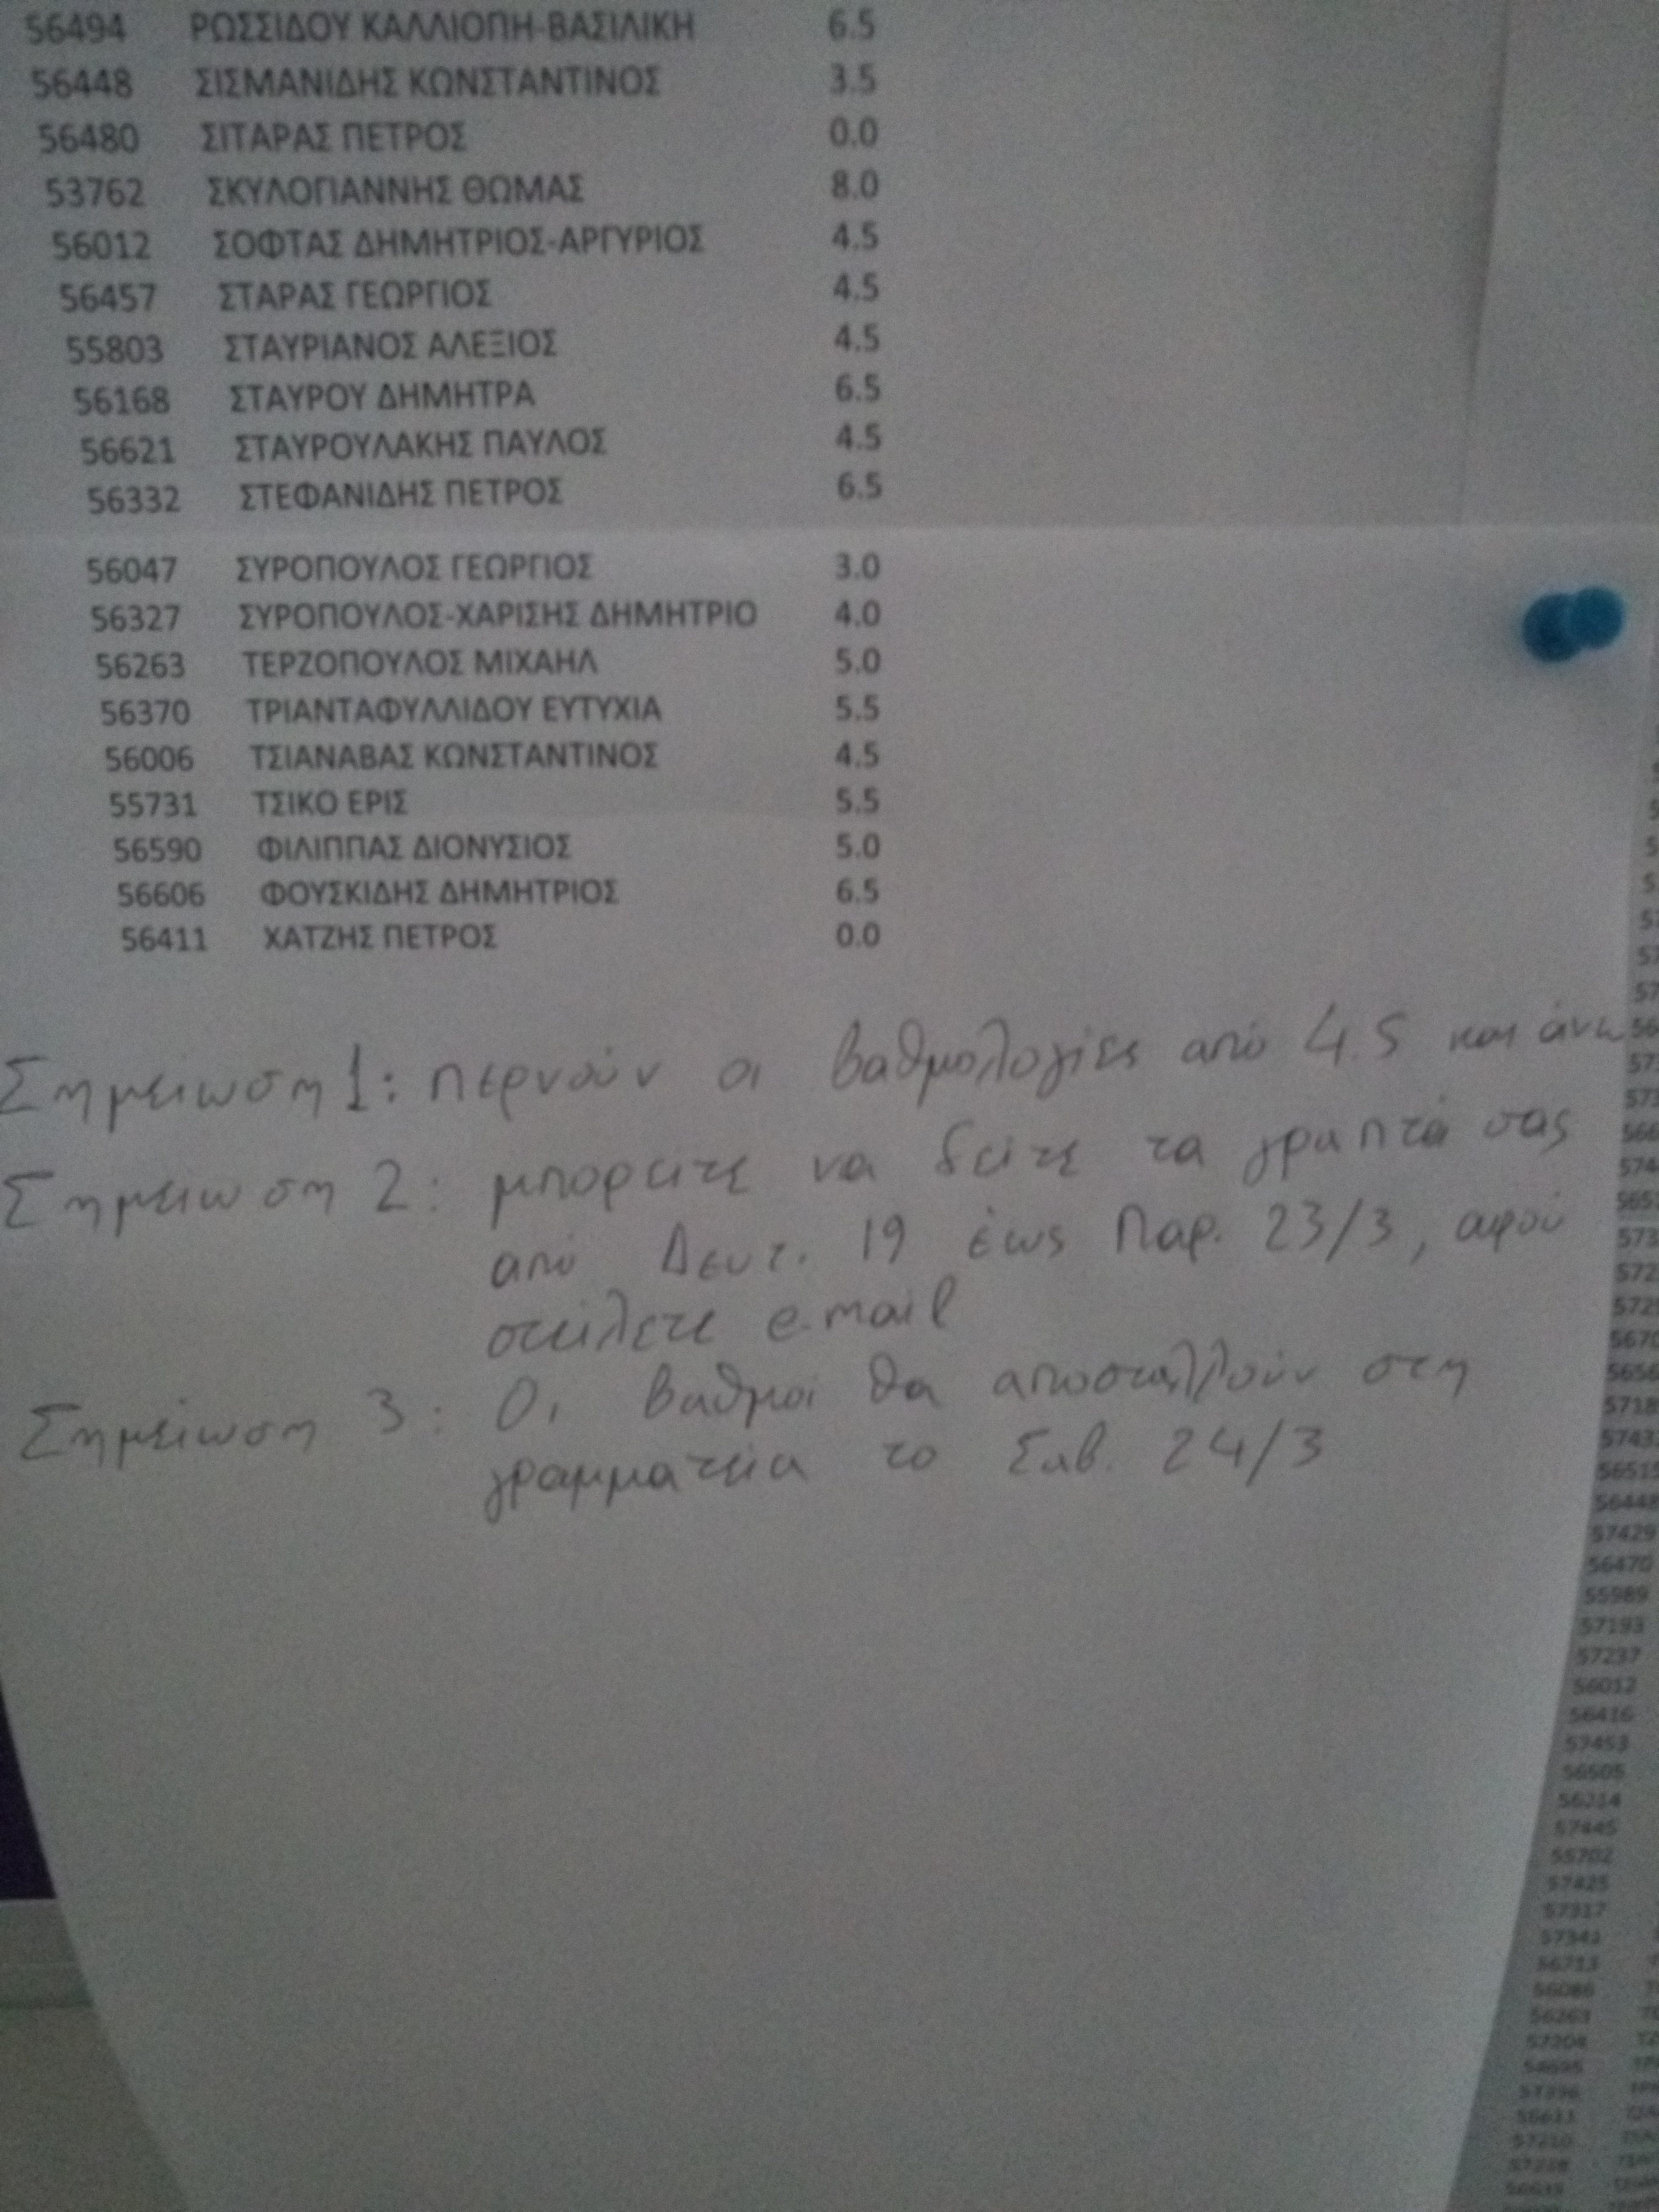 56494 ΡΩΣΣΙΔΟΥ ΚΑΛΛΙΟΠΗ-ΒΑΣΙΛΙΚΗ 6.5
56448 ΣΙΣΜΑΝΙΔΗΣ ΚΩΝΣΤΑΝΤΙΝΟΣ 3.5
56480 ΣΙΤΑΡΑΣ ΠΕΤΡΟΣ 0.0
53762 ΣΚΥΛΟΓΙΑΝΝΗΣ ΘΩΜΑΣ 8.0
56012 ΣΟΦΤΑΣ ΔΗΜΗΤΡΙΟΣ-ΑΡΓΥΡΙΟΣ 4.5
56457 ΣΤΑΡΑΣ ΓΕΩΡΓΙΟΣ 4.5
55803 ΣΤΑΥΡΙΑΝΟΣ ΑΛΕΞΙΟΣ 4.5
56168 ΣΤΑΥΡΟΥ ΔΗΜΗΤΡΑ 6.5
56621 ΣΤΑΥΡΟΥΛΑΚΗΣ ΠΑΥΛΟΣ 4.5
56332 ΣΤΕΦΑΝΙΔΗΣ ΠΕΤΡΟΣ 6.5
56047 ΣΥΡΟΠΟΥΛΟΣ ΓΕΩΡΓΙΟΣ 3.0
56327 ΣΥΡΟΠΟΥΛΟΣ-ΧΑΡΙΣΗΣ ΔΗΜΗΤΡΙΟ 4.0
56263 ΤΕΡΖΟΠΟΥΛΟΣ ΜΙΧΑΗΛ 5.0
56370 ΤΡΙΑΝΤΑΦΥΛΛΙΔΟΥ ΕΥΤΥΧΙΑ 5.5
56006 ΤΣΙΑΝΑΒΑΣ ΚΩΝΣΤΑΝΤΙΝΟΣ 4.5
55731 ΤΣΙΚΟ ΕΡΙΣ 5.5
56590 ΦΙΛΙΠΠΑΣ ΔΙΟΝΥΣΙΟΣ 5.0
56606 ΦΟΥΣΚΙΔΗΣ ΔΗΜΗΤΡΙΟΣ 6.5
56411 ΧΑΤΖΗΣ ΠΕΤΡΟΣ 0.0
Σημείωση 1: περνούν οι βαθμολογίες από 4.5 και άνω
Σημείωση 2: μπορείτε να δείτε τα γραπτά σας
από Δευτ. 19 έως Παρ. 23/3, αφού
στείλετε e-mail
Σημείωση 3: Οι βαθμοί θα αποσταλλούν στη
γραμματεία το Σαβ. 24/3
57429
56470
55989
57193
57237
56012
56416
57453
56505